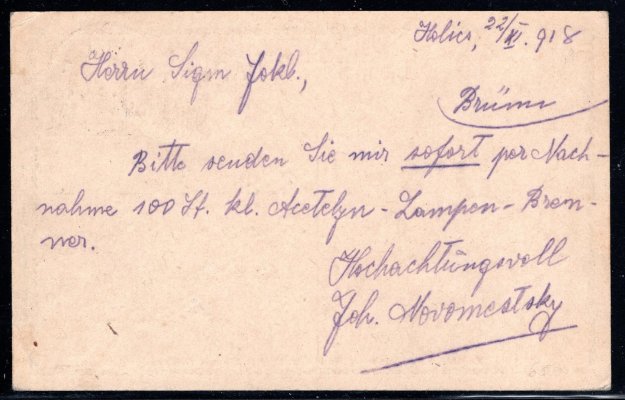 Holics, 22/XI. 918
Herrn Sigm Jokl.,
Brünn
Bitte senden Sie mir sofort per Nach-
nahme 100 St. kl. Acetelyn - Lampen - Bren-
ner.
Hochachtungsvoll
Joh. Novomestsky